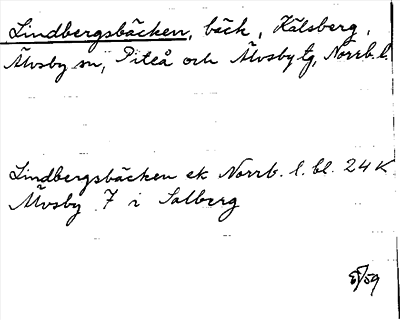 Lindbergsbäcken, bäck, Kälsberg,
Älvsby sn, Piteå och Älvsby tg, Norrb. l.
Lindbergsbäcken ek Norrb. l. bl. 24 K
Älvsby 7 i Salberg